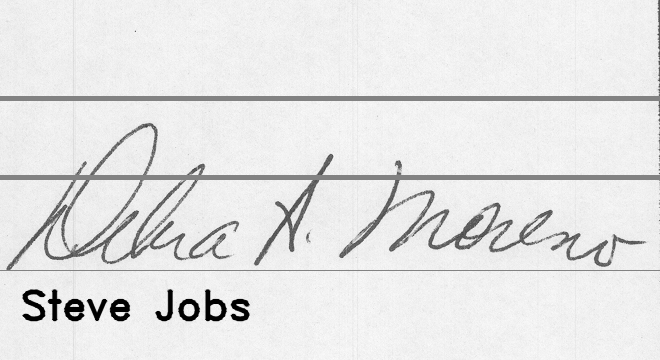 Debra A. Moreno
Steve Jobs